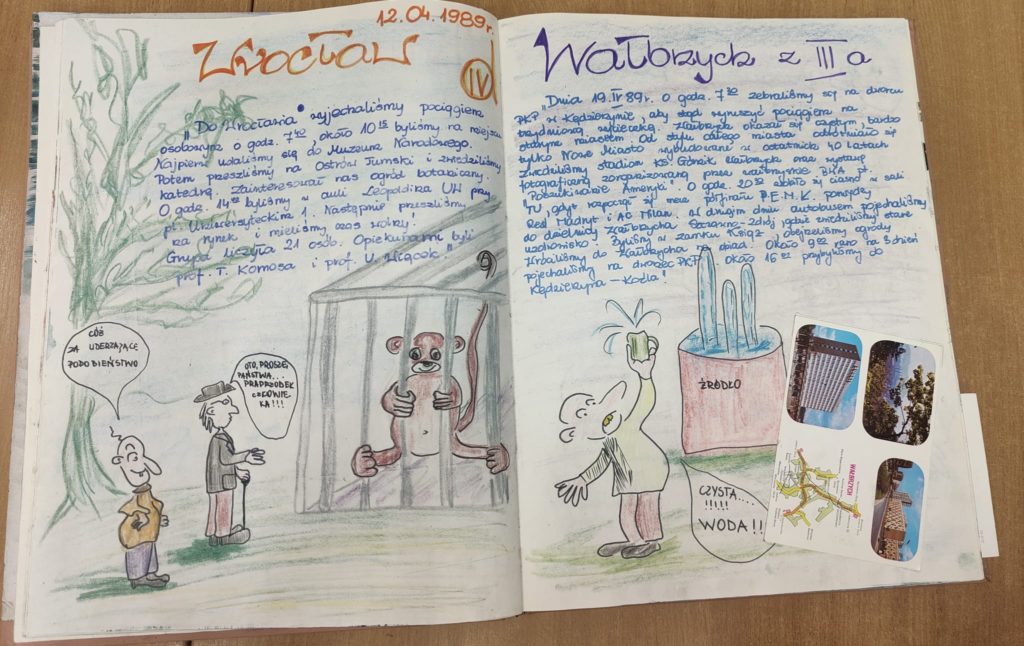 12.04.1989r.
Wrocław
IV
"Do Wrocławia wyjechaliśmy pociągiem
osobowym o godz. 7⁴⁰ około 10¹⁵ byliśmy na miejscu
Najpierw udaliśmy się do Muzeum Narodowego.
Potem przeszliśmy na Ostrów Tumski i zwiedziliśmy
katedrę. Zainteresował nas ogród botaniczny.
O godz. 14⁰⁰ byliśmy w auli Leopoldika UW przy
pl. Uniwersyteckim 1. Następnie przeszliśmy
na rynek i mieliśmy czas wolny!
Grupa liczyła 21 osób. Opiekunami byli
prof. T. Komosa i prof. U. Wiącek."
CÓŻ
ZA UDERZAJĄCE
PODOBIEŃSTWO
OTO, PROSZĘ
PAŃSTWA...
PRAPRZODEK
CZŁOWIE-
KA!!!
Wałbrzych z III a
"Dnia 19.IV 89r. o godz. 7³⁰ zebraliśmy się na dworcu
PKP w Kędzierzynie, aby stąd wyruszyć pociągiem na
trzydniową wycieczkę. Wałbrzych okazał się czystym, bardzo
starym miastem. Od stylu całego miasta odróżniało się
tylko Nowe Miasto wybudowane w ostatnich 40 latach
Zwiedziliśmy stadion KS Górnik Wałbrzych oraz wystawę
fotograficzną zorganizowaną przez wałbrzyskie BWA pt.
"Poszukiwanie Ameryki". O godz. 20 zrobiło się ciasno w sali
TV, gdyż rozpoczął się mecz półfinału P.E.M.K. pomiędzy
Real Madryt i AC Milan. Na drugim dniu autobusem pojechaliśmy
do dzielnicy Wałbrzycha Szczawno-Zdrój gdzie zwiedziliśmy stare
uzdrowisko. Byliśmy w zamku Książ, obejrzeliśmy ogrody
Wróciliśmy do Wałbrzycha na obiad. Około 9⁰⁰ rano na 3 dzień
pojechaliśmy na dworzec PKP. Około 16 przybyliśmy do
Kędzierzyna - Koźla!
ŹRÓDŁO
CZYSTA....
!!!!!
WODA!!
WAŁBRZYCH